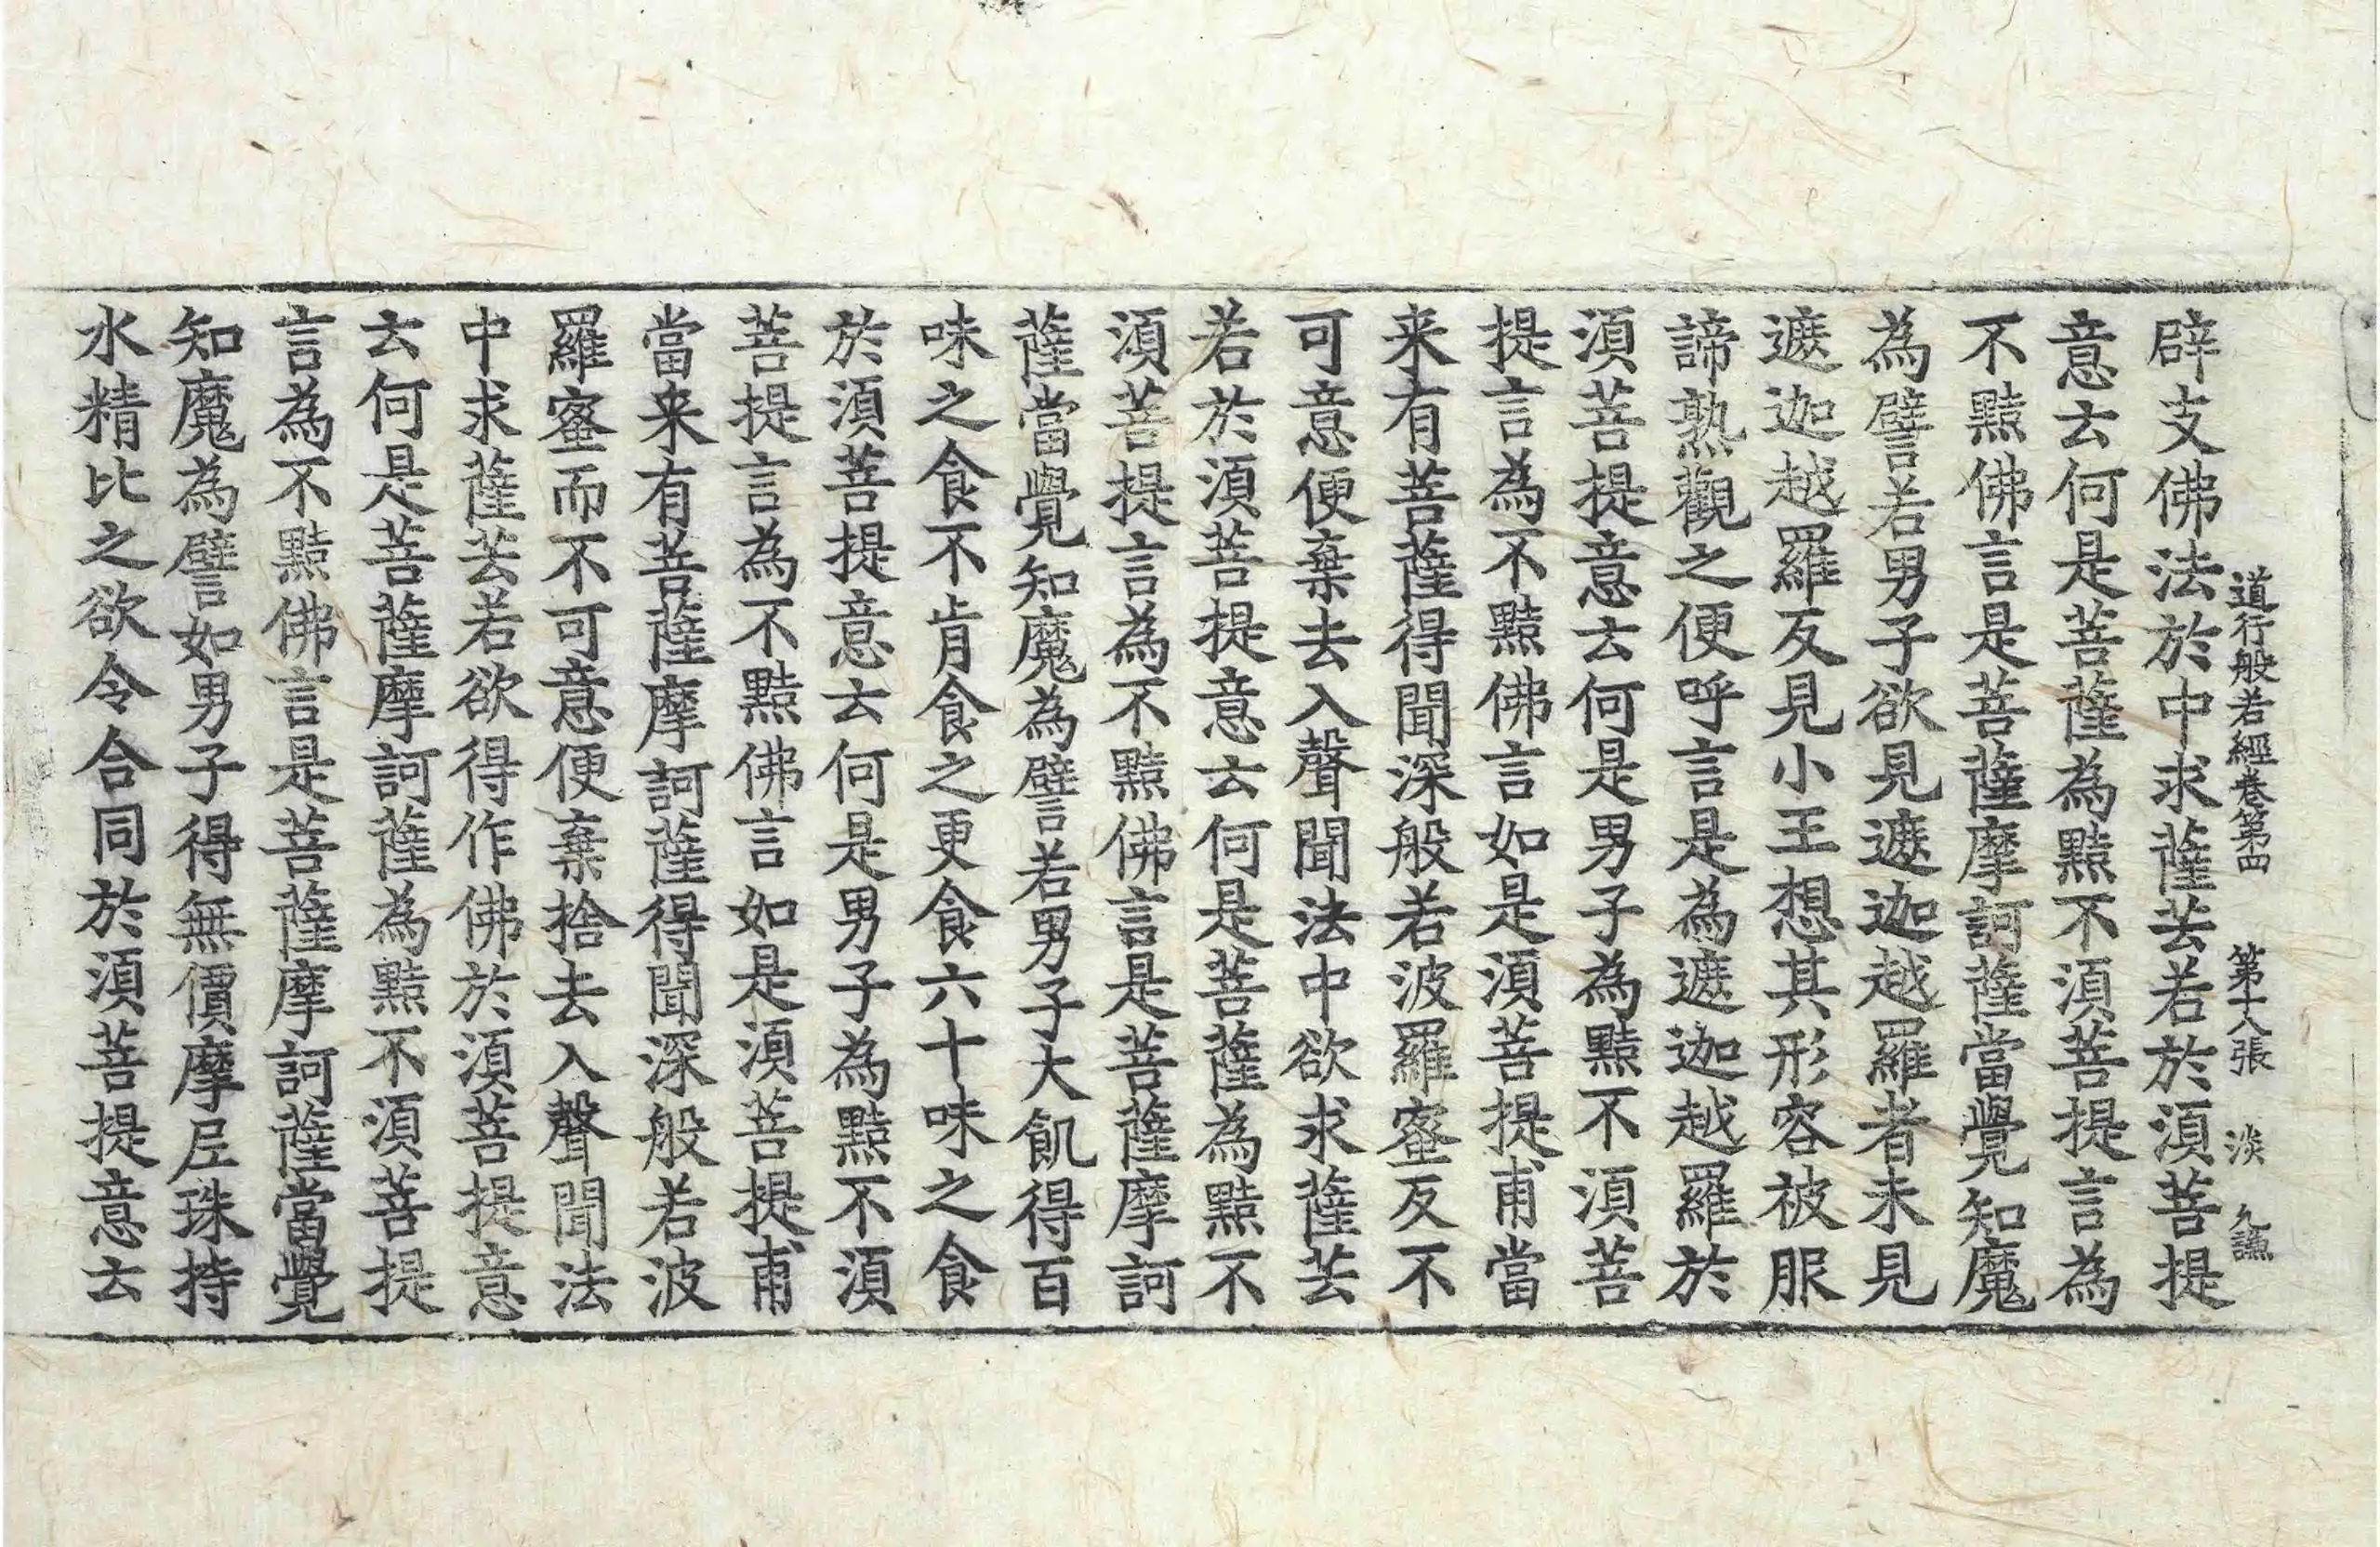 道行般若經卷第四 第十八張 淡 久謙
辟支佛法於中求薩芸若於湏菩提
意云何是菩薩為黠不湏菩提言為
不黠佛言是菩薩摩訶薩當覺知魔
為譬若男子欲見遮迦越羅者未見
遮迦越羅反見小王想其形容被服
諦熟觀之便呼言是為遮迦越羅於
湏菩提意云何是男子為黠不湏菩
提言為不黠佛言如是湏菩提甫當
来有菩薩得聞深般若波羅蜜反不
可意便棄去入聲聞法中欲求薩芸
若於湏菩提意云何是菩薩為黠不
湏菩提言為不黠佛言是菩薩摩訶
薩當覺知魔為譬若男子大飢得百
味之食不肯食之更食六十味之食
於湏菩提意云何是男子為黠不湏
菩提言為不黠佛言如是湏菩提甫
當来有菩薩摩訶薩得聞深般若波
羅蜜而不可意便棄捨去入聲聞法
中求薩芸若欲得作佛於湏菩提意
云何是菩薩摩訶薩為黠不湏菩提
言為不黠佛言是菩薩摩訶薩當覺
知魔為譬如男子得無價摩尼珠持
水精比之欲令合同於湏菩提意云